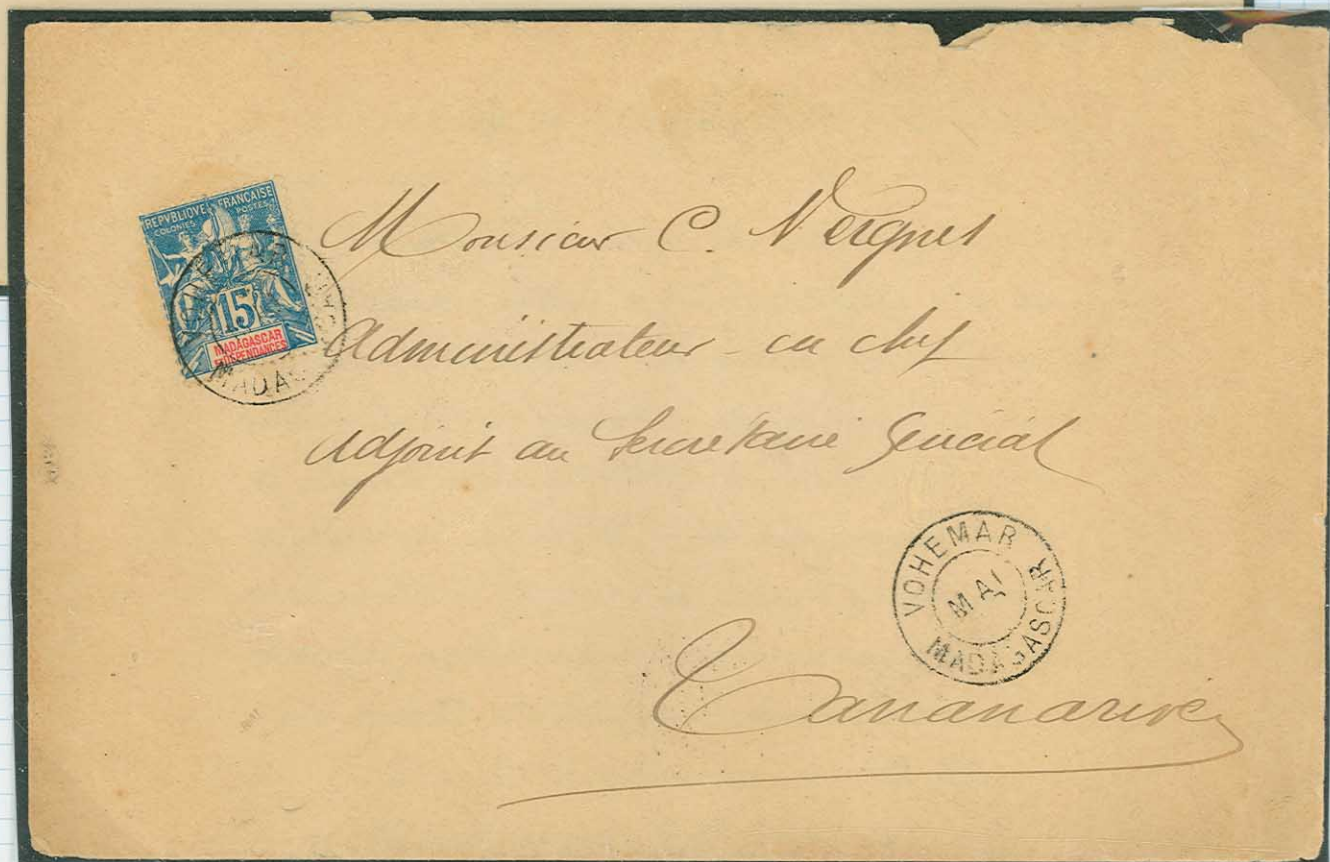 REPVBLIQVE FRANÇAISE
COLONIES POSTES
15
MADAGASCAR
ET DEPENDANCES
VOHEMAR
MADAGASCAR
Monsieur C. Vergnes
Administrateur en chef
Adjoint au Secretaire General
VOHEMAR
MAI
MADAGASCAR
Tananarive